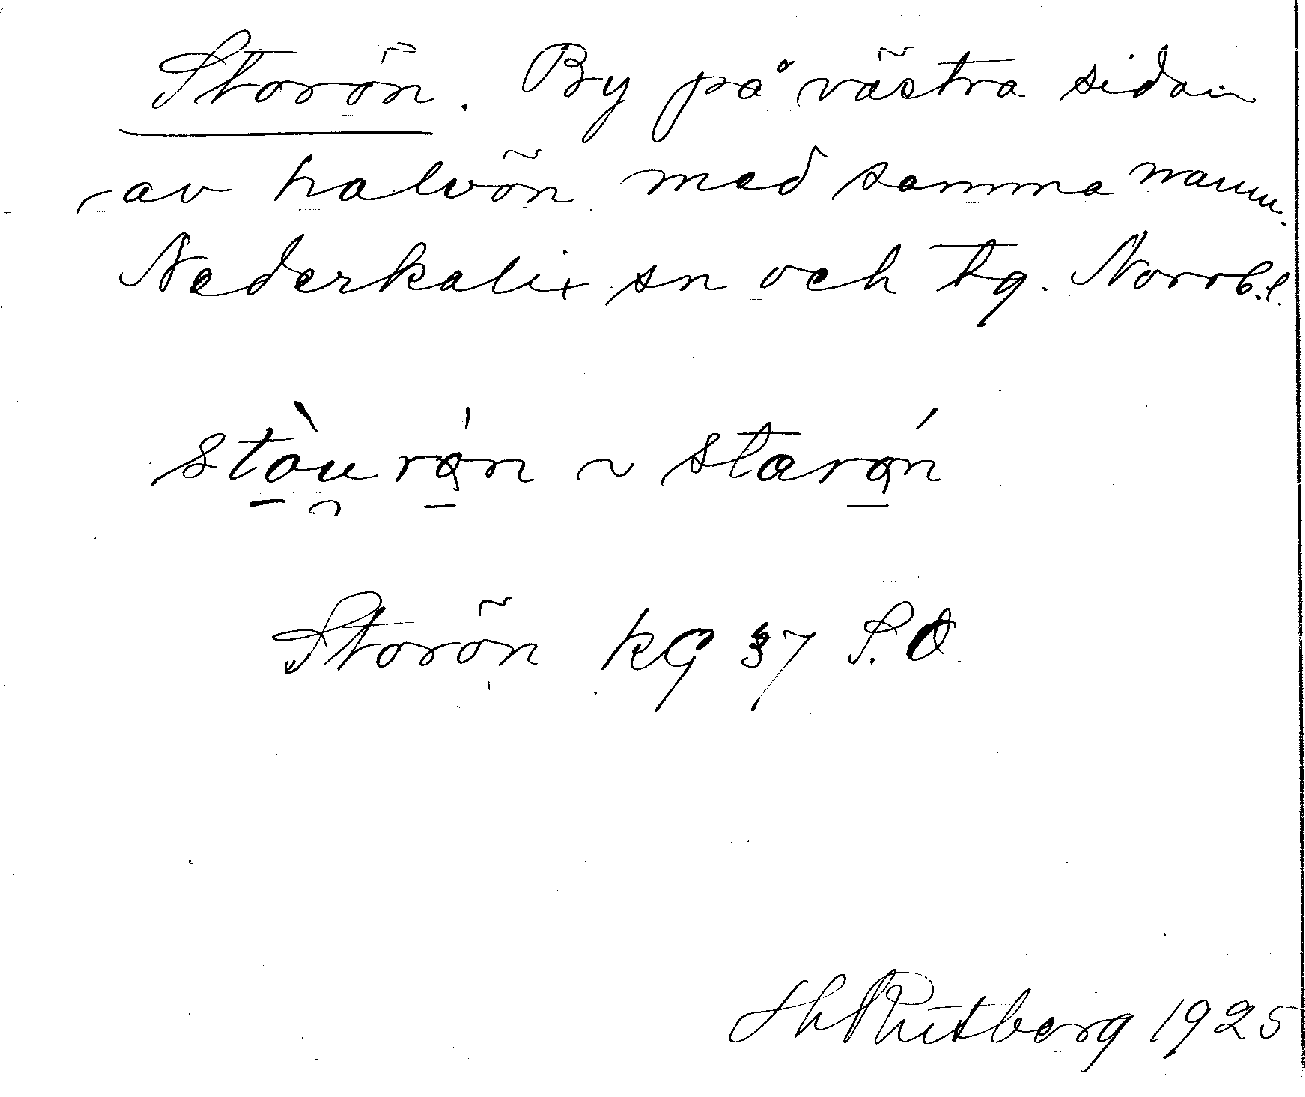 Storön. By på västra sidan
av halvön med samma namn.
Nederkalix sn och tg. Norrb.l.
stòu̯rǿn ~ starǿn
Storön kg 37 S.O
Rutberg 1925